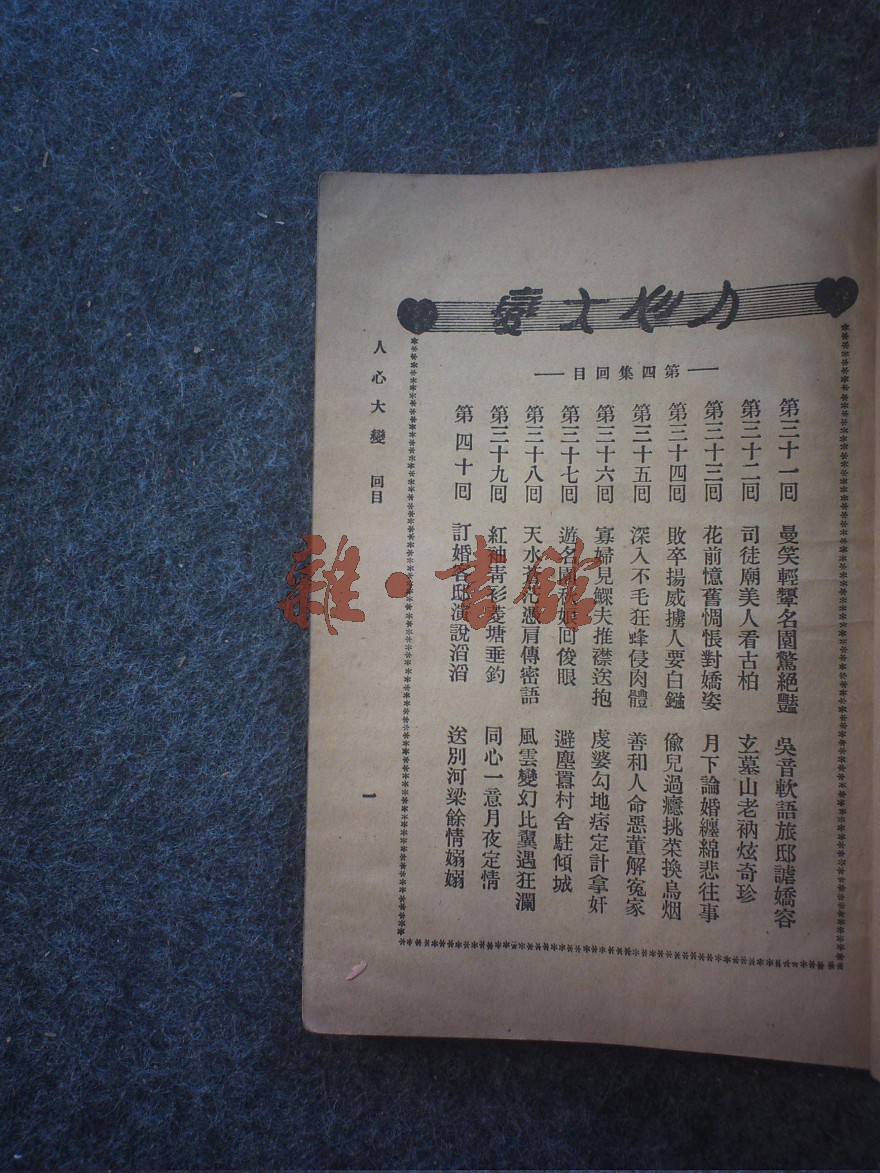 人心大變
第四集回目
第三十一回 曼笑輕顰名園驚絕豔 吳音軟語旅邸謔嬌容
第三十二回 司徒廟美人看古柏 玄墓山老衲炫奇珍
第三十三回 花前憶舊惆悵對嬌姿 月下論婚纏綿悲往事
第三十四回 敗卒揚威擄人要白鏹 偸兒過癮挑菜換烏烟
第三十五回 深入不毛狂蜂侵肉體 善和人命惡董解冤家
第三十六回 寡婦見鰥夫推襟送抱 虔婆勾地痞定計拿奸
第三十七回 遊名園秋娘回俊眼 避塵囂村舍駐傾城
第三十八回 天水蒼芒憑肩傳密語 風雲變幻比翼遇狂瀾
第三十九回 紅袖靑衫菱塘垂釣 同心一意月夜定情
第四十回 訂婚客邸演說滔滔 送別河梁餘情嫋嫋
人心大變 回目
一
雜·書館